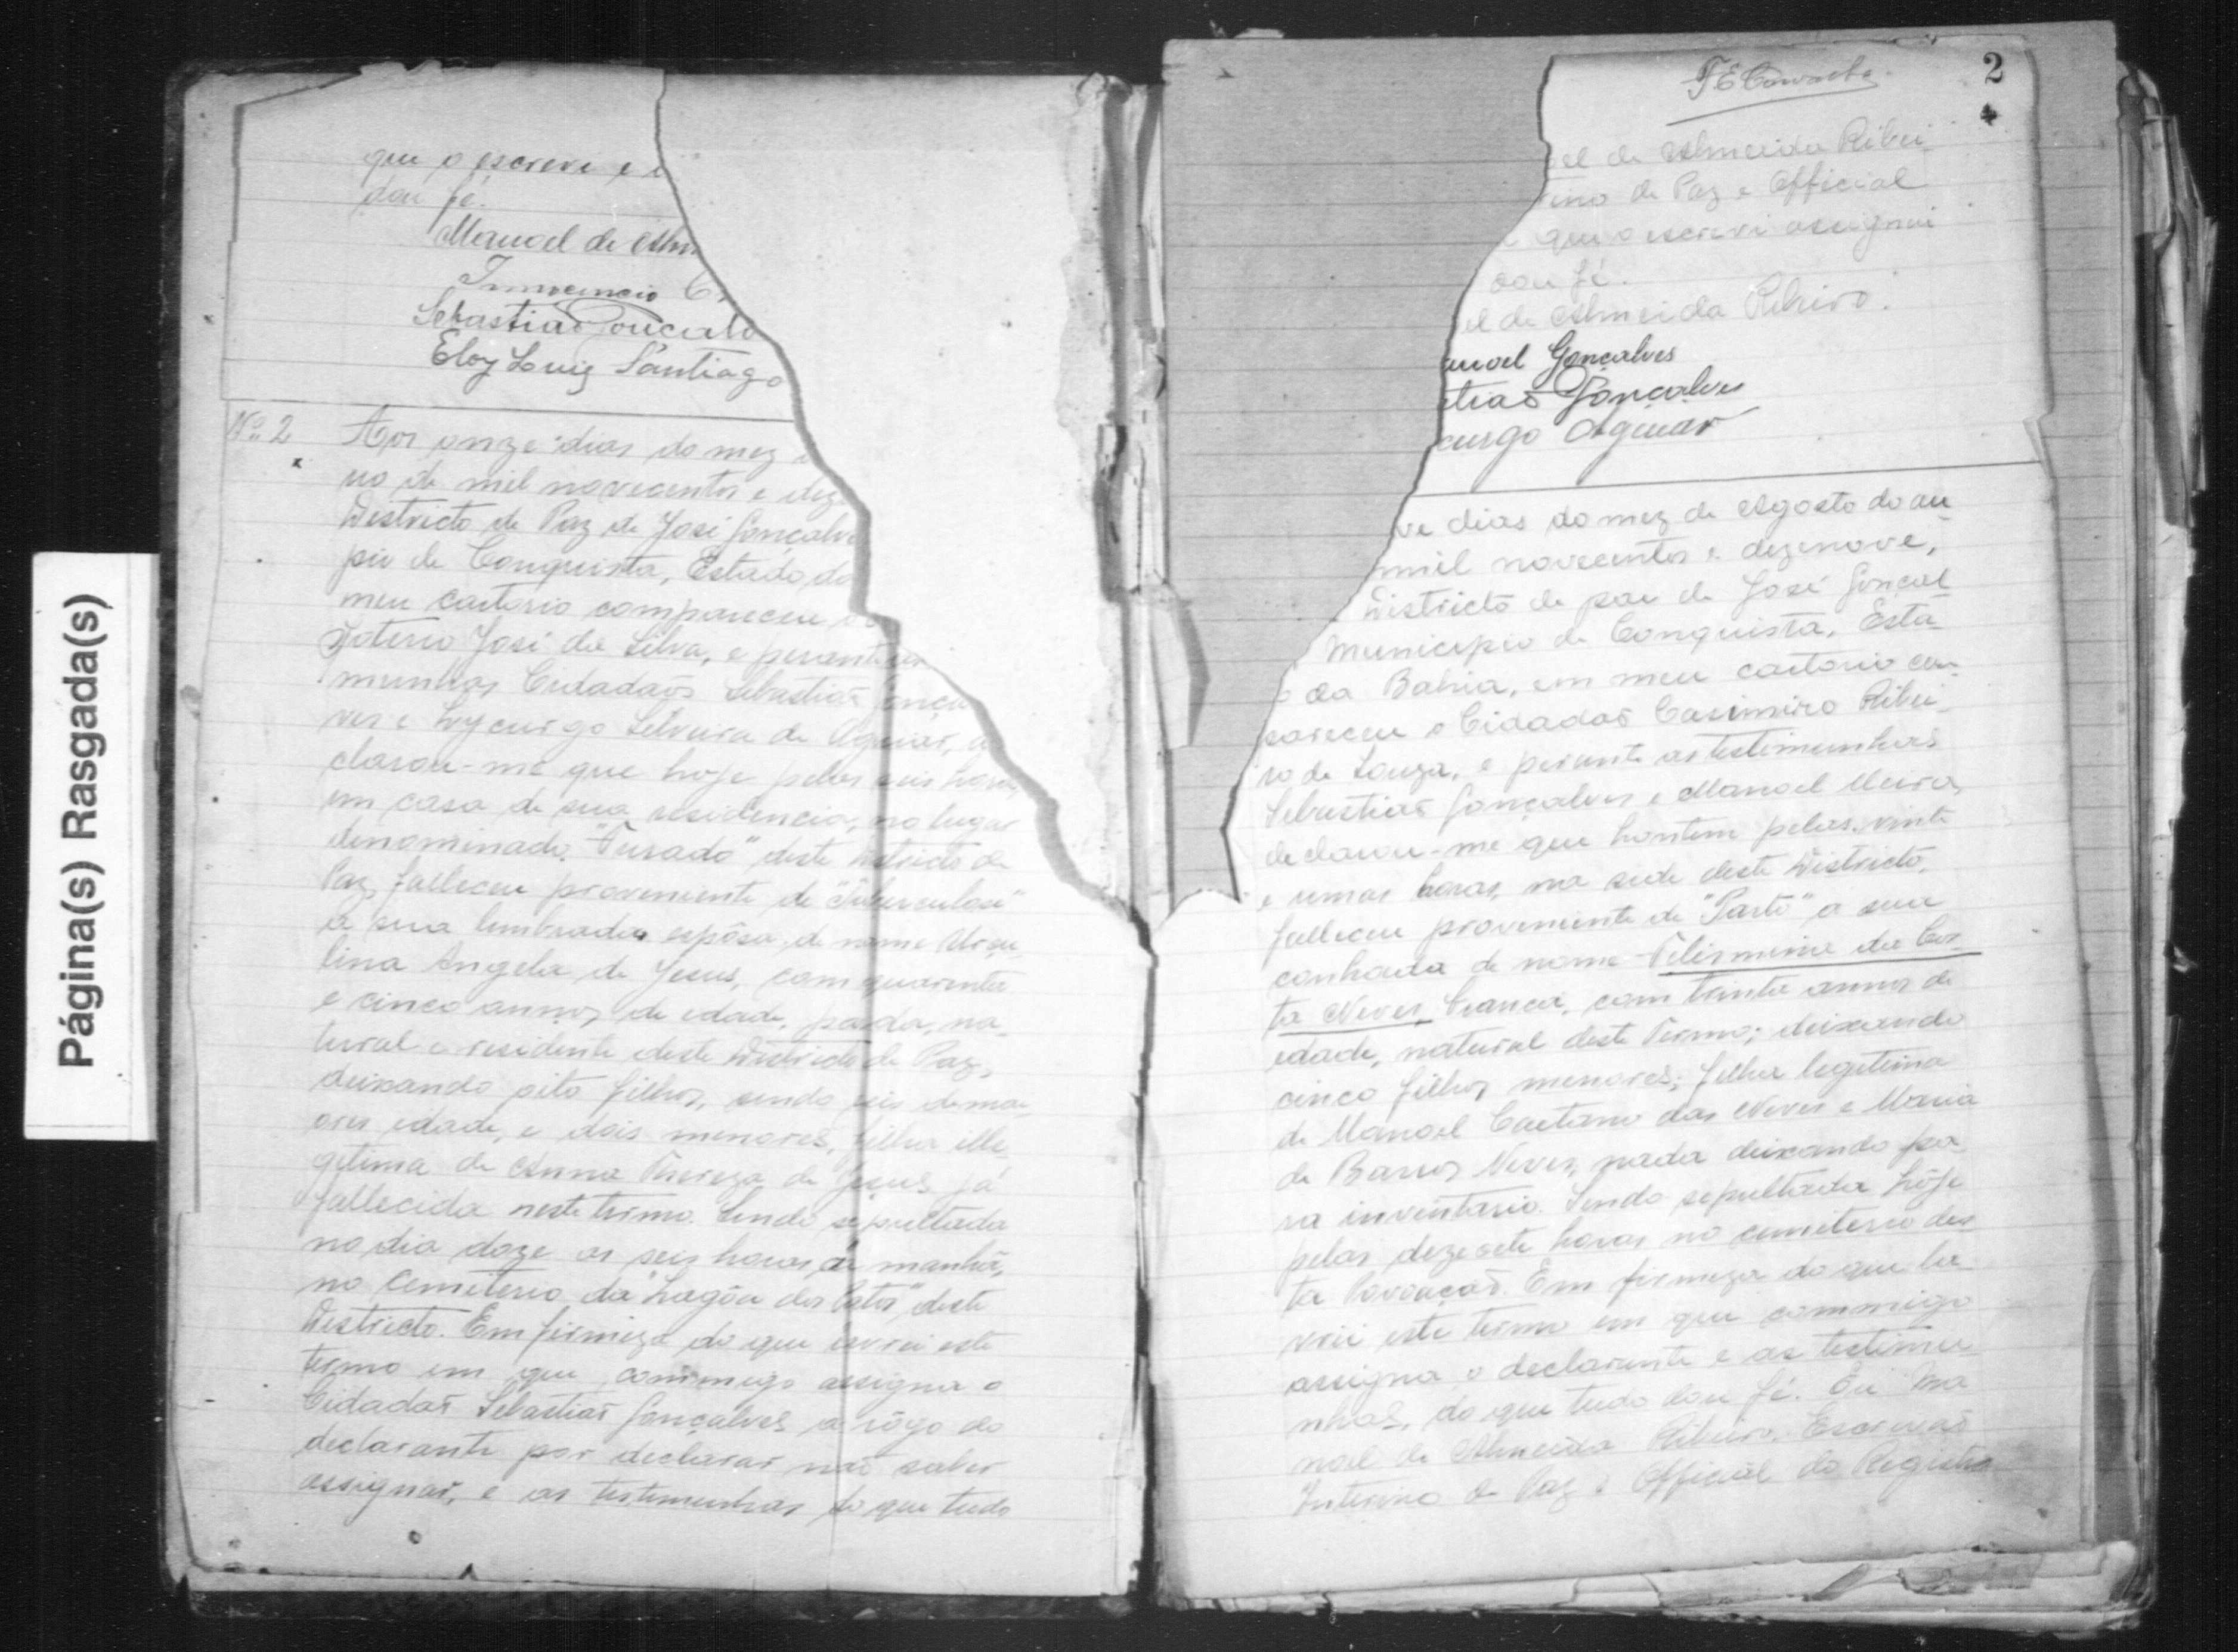 Página(s) Rasgada(s)
que o escrevi e
dou fé.
Manoel de Alm
Innocencio
Sebastião Goncalv
Eloy Luiz Santiago
Nº 2
Aos onze dias do mez
no de mil novecentos e dez
Districto de Paz de José Gonçalve
pio de Conquista, Estado da
meu cartorio compareceu
José da Silva, e perante as
munhas Cidadaõs Sebastiaõ Gonçal
ves e Lycurgo Silveira de Aguiar, de
clarou-me que hoje pelas seis horas,
em casa de sua residencia, no lugar
denominado "Furado" deste Districto de
Paz, falleceu proveniente de "Tuberculose"
a sua espôsa de nome Ursu
lina Angela de Jesus, com quarenta
e cinco annos de edade, parda, na
tural e residente deste Districto de Paz,
deixando oito filhos, sendo seis de mai
ores edade, e dois menores, filha ille
gitima de Anna Thereza de Jesus já
fallecida neste termo. Sendo sepultada
no dia doze as seis horas da manhã,
no Cemiterio da "Lagôa dos Patos" deste
Districto. Em firmeza do que lavrei este
termo em que commigo assigna o
Cidadaõ Sebastiaõ Gonçalves a rôgo do
declarante por declarar naõ saber
assignar, e as testimunhas do que tudo
2
oel de Almeida Ribei
rino de Paz e Official
que o escrevi assignei
dou fé.
el de Almeida Ribeiro.
anoel Gonçalves
stiaõ Gonçalves
curgo Aguiar
ve dias do mez de Agosto do an
mil novecentos e dezenove,
Districto de paz de José Gonçal
Municipio de Conquista, Esta
o da Bahia, em meu cartorio com
pareceu o Cidadaõ Casimiro Ribei
ro de Souza, e perante as testimunhas
Sebastiaõ Gonçalves e Manoel Meira,
declarou-me que hontem pelas vinte
e umas horas, na sede deste Districto,
falleceu proveniente de "Parto" a sua
conhada de nome Felismina da Cos
ta Neves, branca, com trinta annos de
edade, natural deste Termo; deixando
cinco filhos menores; filha legitima
de Manoel Caetano das Neves e Maria
de Barros Neves, nada deixando pa
ra inventario. Sendo sepultada hôje
pelas dezesete horas no cemiterio des
ta Povoaçaõ. Em firmeza do que la
vrei este termo em que commigo
assigna o declarante e as testimu
nhas, do que tudo dou fé. Eu Ma
noel de Almeida Ribeiro, Escrivaõ
Interino de Paz e Official do Registro